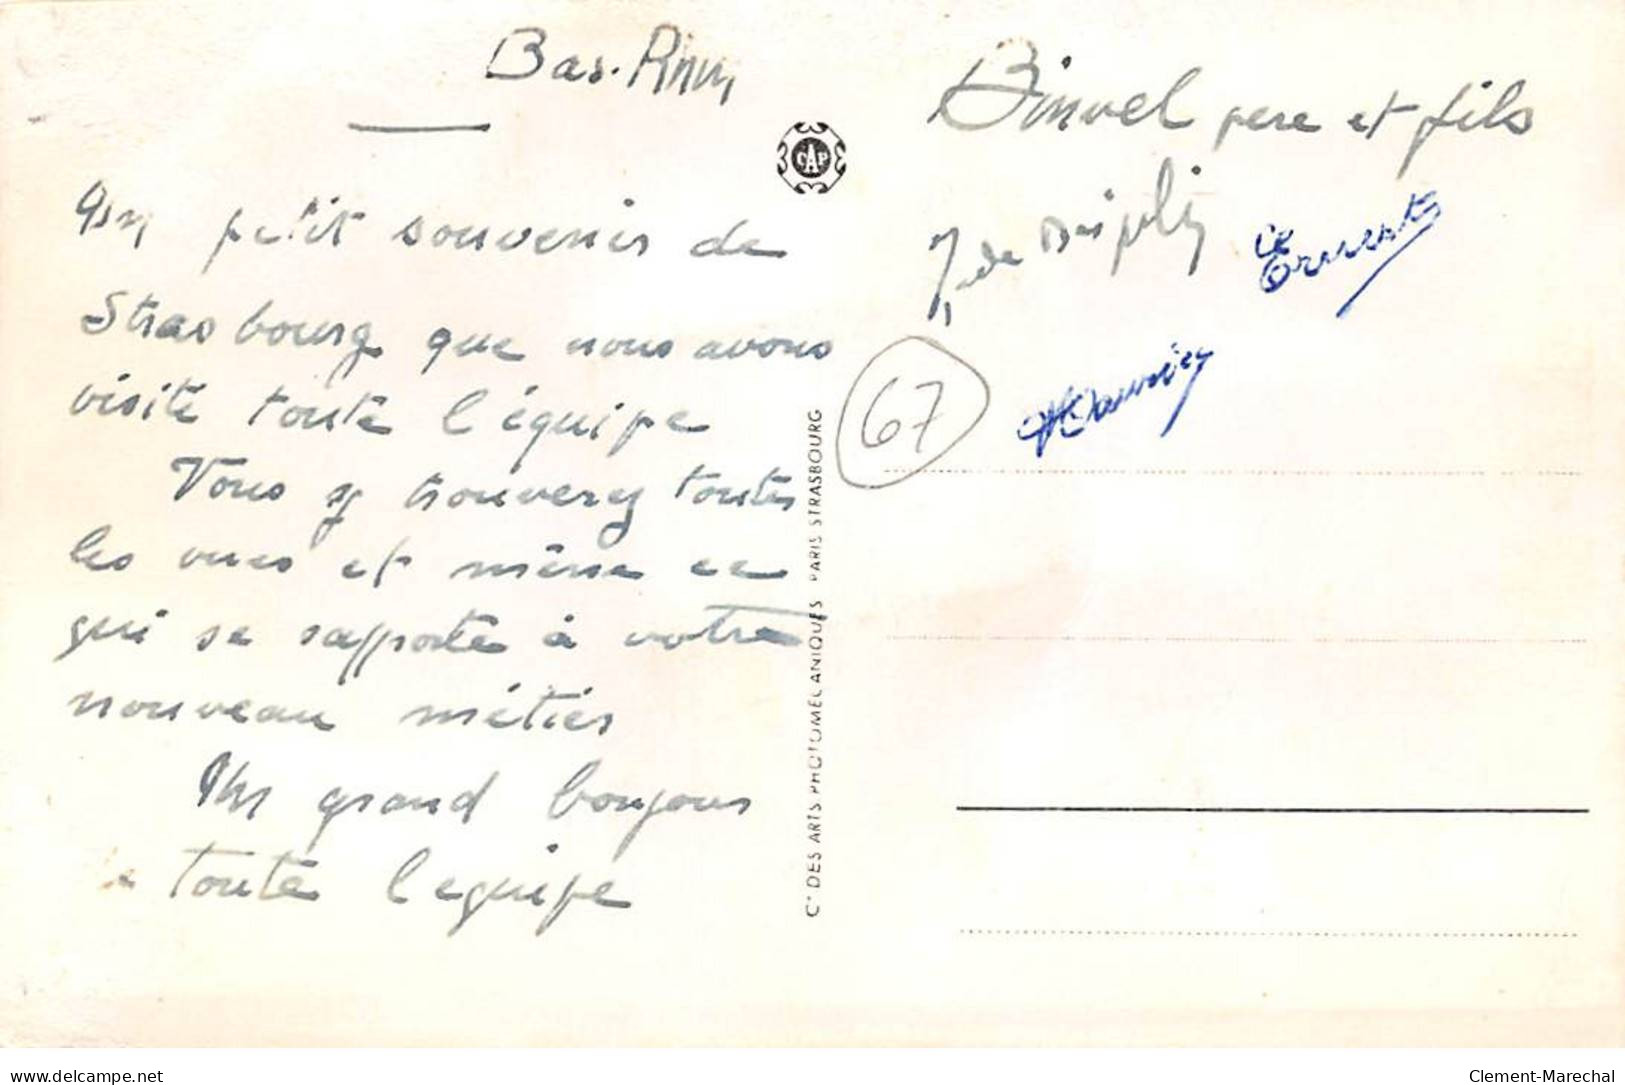 Bas-Rhin
Un petit souvenir de
Strasbourg que nous avons
visité toute l'équipe
Vous y trouverez toutes
les vues et même ce
qui se rapporte à votre
nouveau métier
Un grand bonjour
de toute l'equipe
CAP
Cie DES ARTS PHOTOMECANIQUES PARIS STRASBOURG
67
Binvel pere et fils
Ernest
www.delcampe.net
Clement-Marechal